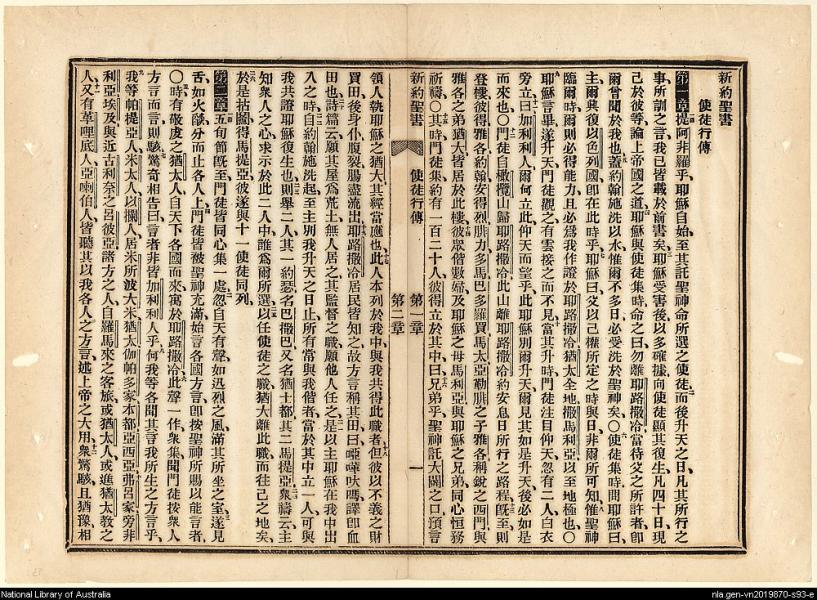 新約聖書
使徒行傳
第一章提阿非羅乎耶穌自始至其託聖神命所選之使徒而後升天之日凡其所行之
事所訓之言我已皆載於前書矣耶穌受害後以多確據向使徒顯其復生凡四十日現
己於彼等論上帝國之道耶穌與使徒集時命之曰勿離耶路撒冷當待父之所許者卽
爾曾聞於我也蓋約翰施洗以水惟爾不多日必受洗於聖神矣○使徒集時問耶穌曰
主爾興復以色列國卽在此時乎耶穌曰父以己權所定之時與日非爾所可知惟聖神
臨爾時爾則必得能力且必爲我作證於耶路撒冷猶太全地撒馬利亞以至地極也○
耶穌言畢遂升天門徒觀之有雲接之而不見當其升時門徒注目仰天忽有二人白衣
旁立曰加利利人爾何立此仰天而望乎此耶穌別爾升天爾見其如是升天後必如是
而來也○門徒自橄欖山歸耶路撒冷此山離耶路撒冷約安息日所行之路程旣至則
登樓彼得雅各約翰安得烈腓力多馬巴多羅買馬太亞勒腓之子雅各稱銳之西門與
雅各之弟猶大皆居於此樓彼眾偕數婦及耶穌之母馬利亞與耶穌之兄弟同心恒務
祈禱○其時門徒集約有一百二十人彼得立於其中曰兄弟乎聖神託大闢之口預言
新約聖書 使徒行傳 第一章 第二章 一
領人執耶穌之猶大其經當應也此人本列於我中與我共得此職者但彼以不義之財
買田後身仆腹裂腸盡流出耶路撒冷居民皆知之故方言稱其田曰啞嘩吠嗎譯卽血
田也詩篇云願其屋為荒土無人居之其監督之職願他人任之是以主耶穌在我中出
入之時自約翰施洗起至主別我升天之日止所有常與我偕者當於其中立一人可與
我共證耶穌復生也則舉二人其一約瑟名巴撒巴又名猶士都其二馬提亞眾禱云主
知衆人之心求示於此二人中誰爲爾所選以任使徒之職猶大離此職而往己之地矣
於是拈鬮得馬提亞彼遂與十一使徒同列
第二章五旬節旣至門徒皆同心集一處忽自天有聲如迅烈之風滿其所坐之室遂見
舌如火燄分而止各人上門徒皆被聖神充滿始言各國方言卽按聖神所賜以能言者
○時有敬虔之猶太人自天下各國而來寓於耶路撒冷此聲一作衆集聞門徒按衆人
方言而言則駭驚奇相告曰言者非皆加利利人乎何我等各聞其言我所生之方言乎
我等帕提亞人米太人以攔人居米所波大米猶太伽帕多家本都亞西亞弗呂家旁非
利亞埃及與近古利奈之呂彼亞諸方之人自羅馬來之客旅或猶太人或進猶太教之
人又有革哩底人亞喇伯人皆聽其以我各人之方言述上帝之大用衆驚駭且猶豫相
National Library of Australia
nla.gen-vn2019870-s93-e